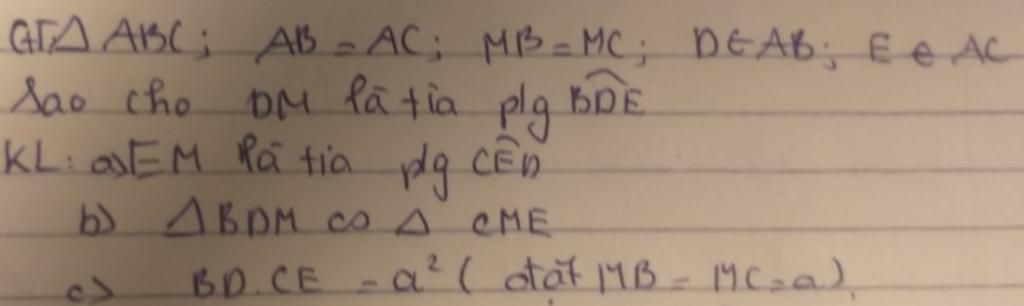 GT △ ABC; AB = AC; MB = MC; D ∈ AB; E ∈ AC
sao cho DM là tia plg BDE
KL: a) EM là tia plg CED
b) △ BDM ∽ △ CME
c) BD.CE = a² ( đặt MB = MC = a).